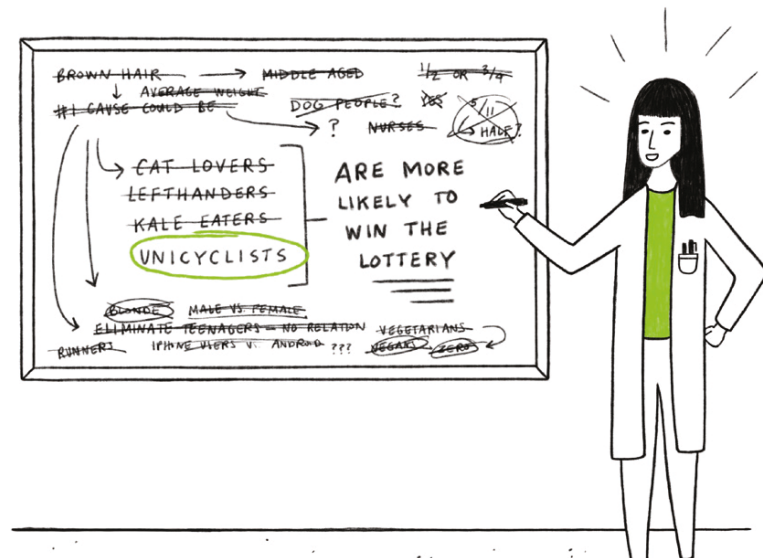 BROWN HAIR → MIDDLE AGED
1/2 OR 3/4
↓ AVERAGE WEIGHT
#1 CAUSE COULD BE
DOG PEOPLE?
YES
5/11
HALF?
? NURSES
CAT LOVERS
LEFTHANDERS
KALE EATERS
UNICYCLISTS
ARE MORE
LIKELY TO
WIN THE
LOTTERY
BLONDE MALE VS. FEMALE
ELIMINATE TEENAGERS - NO RELATION VEGETARIANS
RUNNERS
V. ANDROID ???
VEGAN ZERO